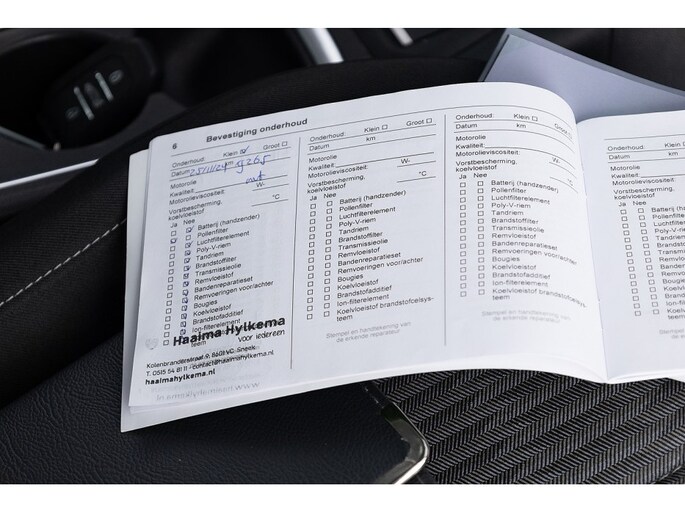 6 Bevestiging onderhoud
Onderhoud: Klein Groot
Datum 25/11/24 km 9265
Motorolie
Kwaliteit: nvt
Motorolieviscositeit: W-
Vorstbescherming, °C
koelvloeistof
Ja Nee
Batterij (handzender)
Pollenfilter
Luchtfilterelement
Poly-V-riem
Tandriem
Brandstoffilter
Transmissieolie
Remvloeistof
Bandenreparatieset
Remvoeringen voor/achter
Bougies
Koelvloeistof
Brandstofadditief
Ion-filterelement
teem
Haaima Hylkema
voor iedereen
T. 0515 54 81 11
haaimahylkema.nl
Onderhoud: Klein Groot
Datum km
Motorolie
Kwaliteit:
Motorolieviscositeit: W-
Vorstbescherming, °C
koelvloeistof
Ja Nee
Batterij (handzender)
Pollenfilter
Luchtfilterelement
Poly-V-riem
Tandriem
Brandstoffilter
Transmissieolie
Remvloeistof
Bandenreparatieset
Remvoeringen voor/achter
Bougies
Koelvloeistof
Brandstofadditief
Ion-filterelement
Koelvloeistof brandstofcelsys-
teem
Stempel en handtekening van
de erkende reparateur
Onderhoud: Klein Groot
Datum km
Motorolie
Kwaliteit:
Motorolieviscositeit: W-
Vorstbescherming, °C
koelvloeistof
Ja Nee
Batterij (handzender)
Pollenfilter
Luchtfilterelement
Poly-V-riem
Tandriem
Brandstoffilter
Transmissieolie
Remvloeistof
Bandenreparatieset
Remvoeringen voor/achter
Bougies
Koelvloeistof
Brandstofadditief
Ion-filterelement
Koelvloeistof brandstofcelsys-
teem
Stempel en handtekening van
de erkende reparateur
Onderhoud:
Datum
Motorolie
Kwaliteit:
Motorolieviscositeit:
Vorstbescherming,
koelvloeistof
Ja Nee